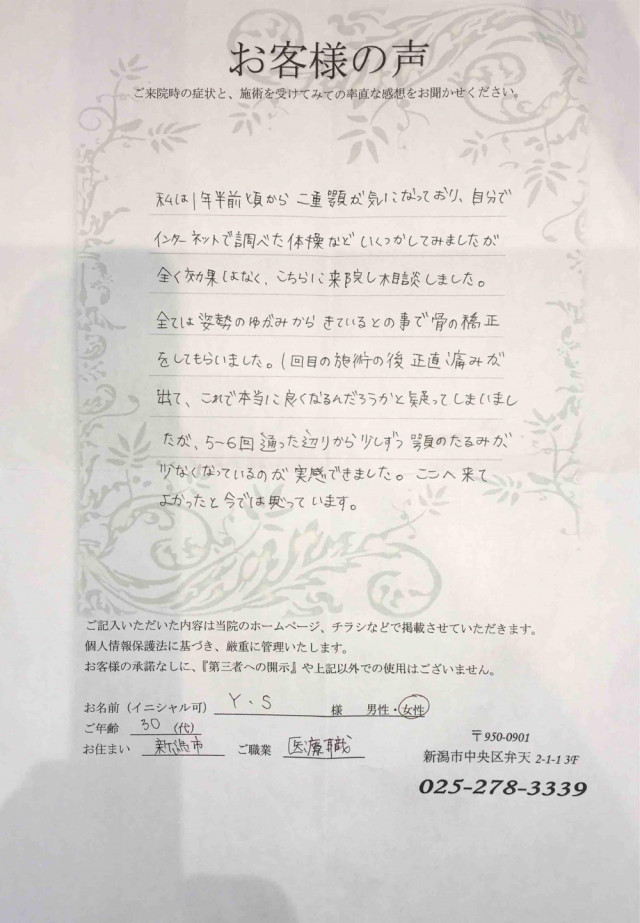 お客様の声
ご来院時の症状と、施術を受けてみての率直な感想をお聞かせください。
私は1年半前頃から二重顎が気になっており、自分で
インターネットで調べた体操などいくつかしてみましたが
全く効果はなく、こちらに来院し相談しました。
全ては姿勢のゆがみからきているとの事で骨の矯正
をしてもらいました。1回目の施術の後 正直痛みが
出て、これで本当に良くなるんだろうかと疑ってしまいまし
たが、5~6回通った辺りから少しずつ顎のたるみが
少なくなっているのが実感できました。ここへ来て
よかったと今では思っています。
ご記入いただいた内容は当院のホームページ、チラシなどで掲載させていただきます。
個人情報保護法に基づき、厳重に管理いたします。
お客様の承諾なしに、『第三者への開示』や上記以外での使用はございません。
お名前（イニシャル可） Y・S 様 男性・女性
ご年齢 30 （代）
お住まい 新潟市 ご職業 医療職
〒950-0901
新潟市中央区弁天 2-1-1 3F
025-278-3339